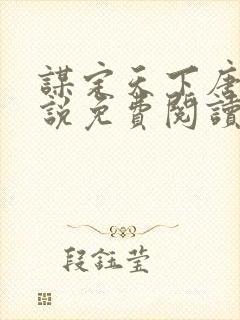 謀定天下唐
說免費閱讀
段鈺瑩